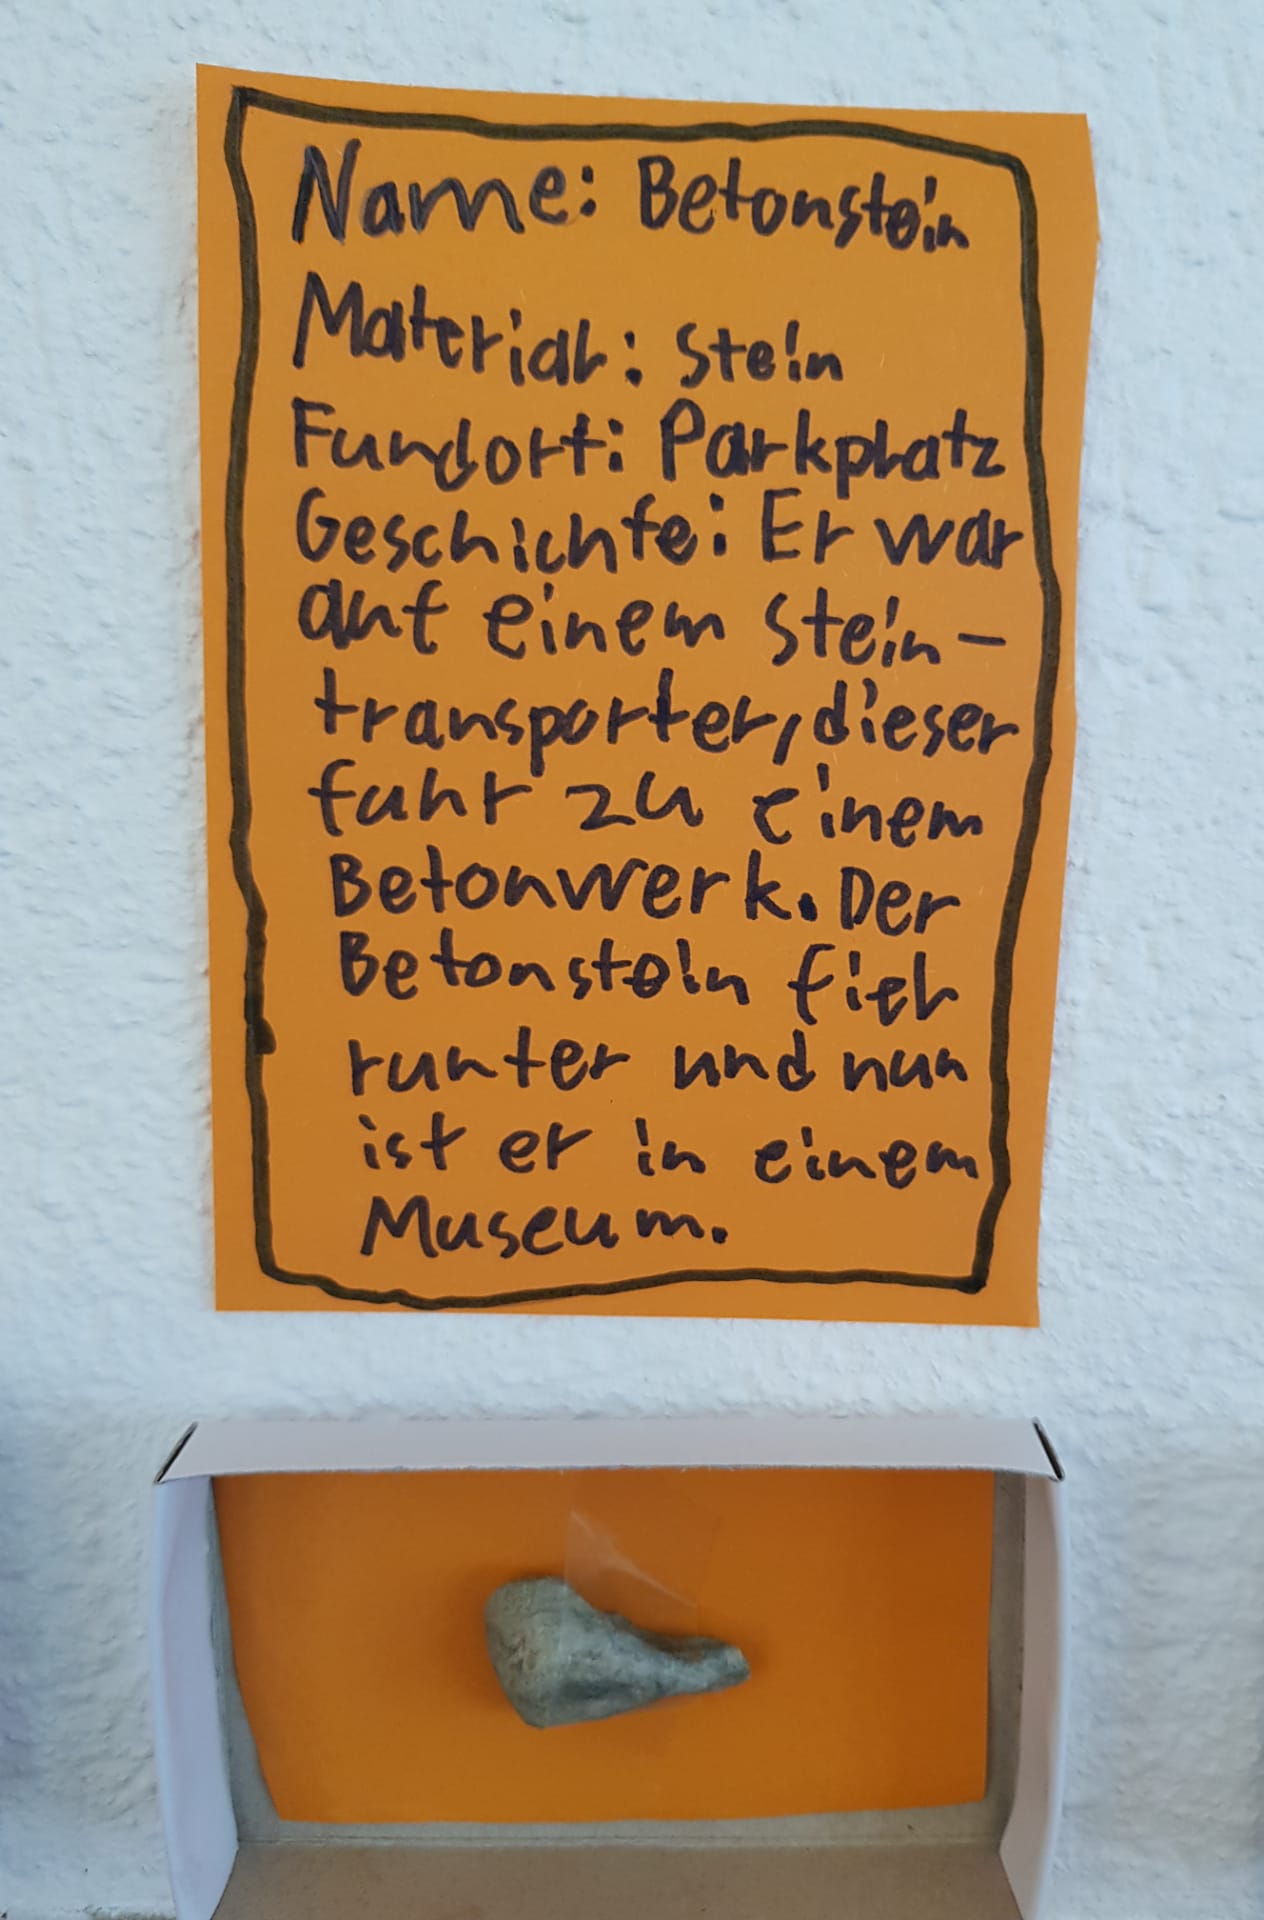 Name: Betonstein
Material: Stein
Fundort: Parkplatz
Geschichte: Er war
auf einem Stein-
transporter, dieser
fuhr zu einem
Betonwerk. Der
Betonstein fiel
runter und nun
ist er in einem
Museum.